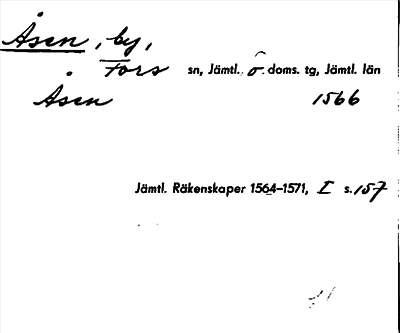 Åsen, by,
Fors sn, Jämtl. ö. doms. tg, Jämtl. län
Åsen 1566
Jämtl. Räkenskaper 1564–1571, I s. 157